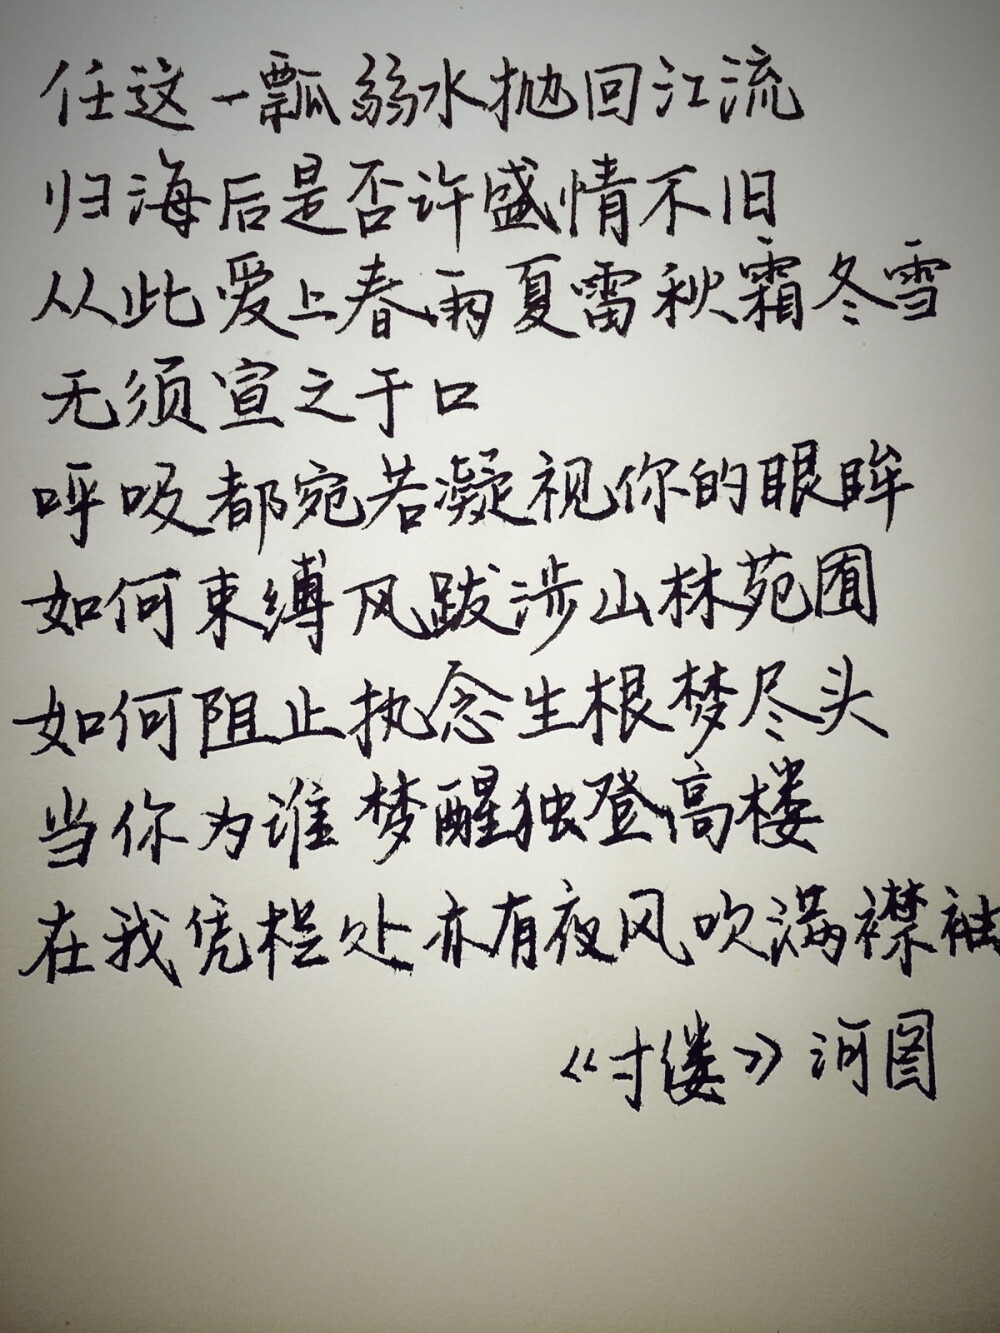 任这一瓢弱水抛回江流
归海后是否许盛情不旧
从此爱上春雨夏雷秋霜冬雪
无须宣之于口
呼吸都宛若凝视你的眼眸
如何束缚风跋涉山林苑囿
如何阻止执念生根梦尽头
当你为谁梦醒独登高楼
在我凭栏处亦有夜风吹满襟袖
《寸缕》河图